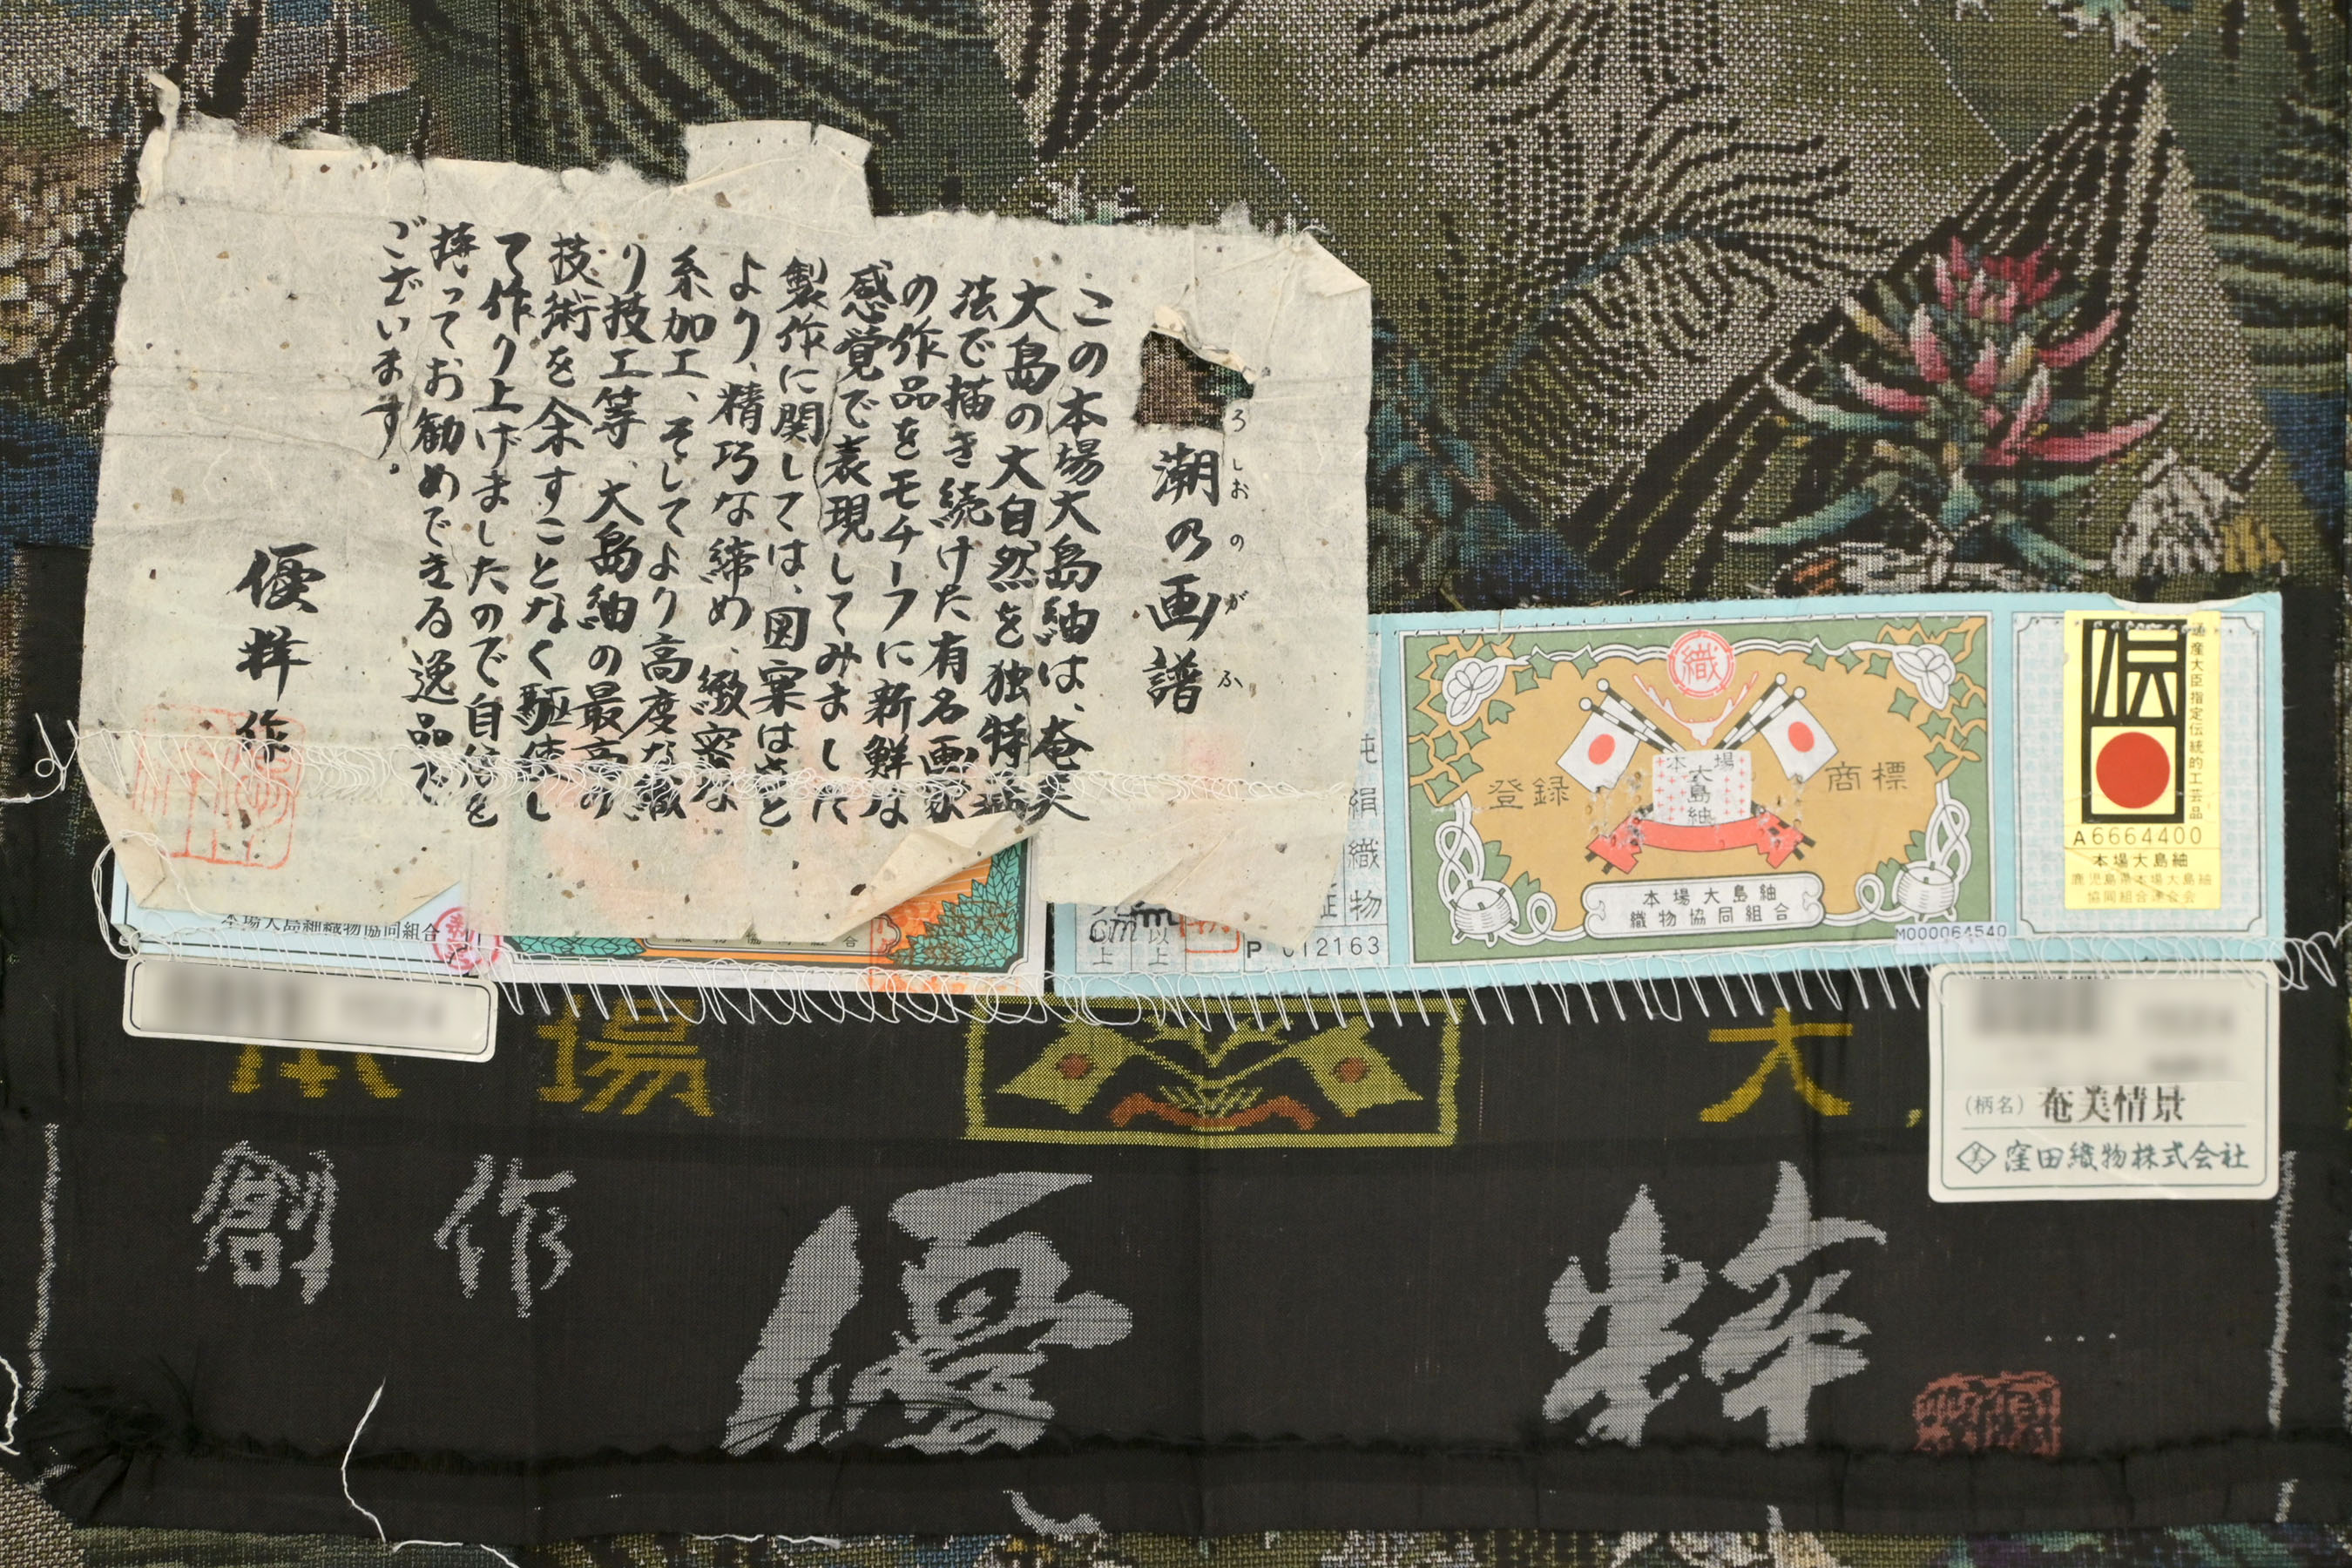 潮の画譜
ろしおのがふ
この本場大島紬は、奄美
大島の大自然を独特
法で描き続けた有名画家
の作品をモチーフに新鮮な
感覚で表現してみました
製作に関しては、図案はもと
より、精巧な締め、緻密な
糸加工、そしてより高度な織
り技工等、大島紬の最高の
技術を余すことなく駆使し
て作り上げましたので自信を
持ってお勧めできる逸品で
ございます。
優粋作
本場大島紬織物協同組合
織物協同組合
cm以上
以上
純絹織物
P 012163
織
登録
商標
本場
大島紬
本場大島紬
織物協同組合
M000064540
伝
通産大臣指定伝統的工芸品
A6664400
本場大島紬
鹿児島県本場大島紬
協同組合連合会
本場
大
(柄名) 奄美情景
窪田織物株式会社
創作
優粋